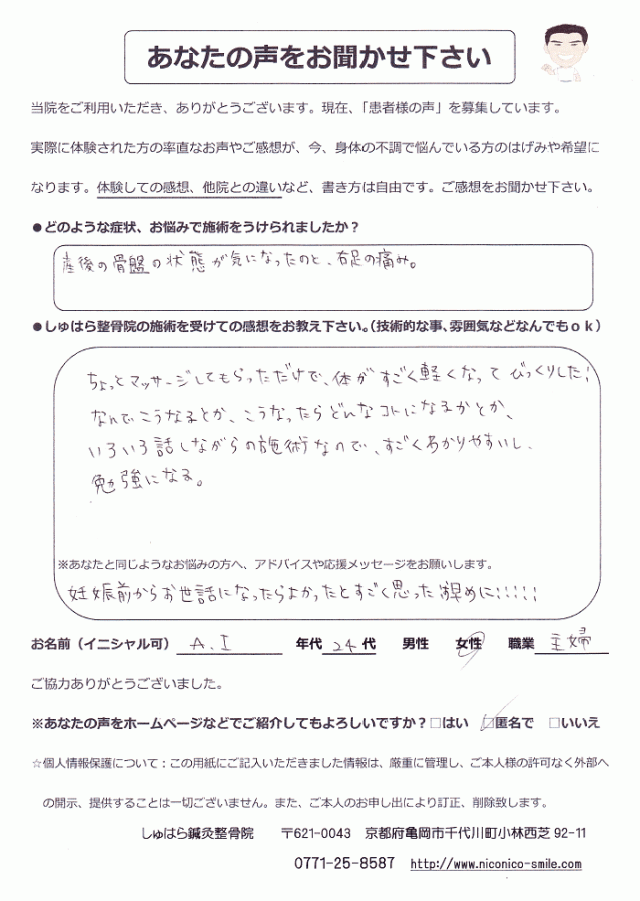 あなたの声をお聞かせ下さい
当院をご利用いただき、ありがとうございます。現在、「患者様の声」を募集しています。
実際に体験された方の率直なお声やご感想が、今、身体の不調で悩んでいる方のはげみや希望に
なります。体験しての感想、他院との違いなど、書き方は自由です。ご感想をお聞かせ下さい。
●どのような症状、お悩みで施術をうけられましたか？
産後の骨盤の状態が気になったのと、右足の痛み。
●しゅはら整骨院の施術を受けての感想をお教え下さい。（技術的な事、雰囲気などなんでもｏｋ）
ちょっとマッサージしてもらっただけで、体がすごく軽くなってびっくりした！
なんでこうなるとか、こうなったらどんなコトになるかとか、
いろいろ話しながらの施術なので、すごくわかりやすいし、
勉強になる。
※あなたと同じようなお悩みの方へ、アドバイスや応援メッセージをお願いします。
妊娠前からお世話になったらよかったとすごく思った 早めに！！！！！
お名前（イニシャル可） A.I 年代 24 代 男性 女性 職業 主婦
ご協力ありがとうございました。
※あなたの声をホームページなどでご紹介してもよろしいですか？□はい ☑匿名で □いいえ
☆個人情報保護について：この用紙にご記入いただきました情報は、厳重に管理し、ご本人様の許可なく外部へ
の開示、提供することは一切ございません。また、ご本人のお申し出により訂正、削除致します。
しゅはら鍼灸整骨院 〒621-0043 京都府亀岡市千代川町小林西芝 92-11
0771-25-8587 http://www.niconico-smile.com